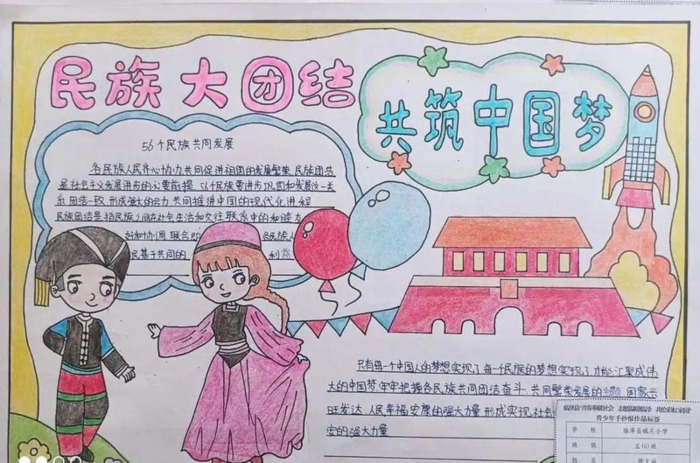 民族大团结
共筑中国梦
56个民族共同发展
各民族人民齐心协力共同促进祖国的发展繁荣 民族团结
是社会主义发展进步的必要前提 56个族要进步巩固和发展
系 团结一致 形成强大的合力 共同推进中国的现代化进程
民族团结是指民族之间在社会生活和交往联系中的和睦
好和协调 联合
民基于共同的
只有每一个中国人的梦想实现了 每一个民族的梦想实现了 才能汇聚成伟
大的中国梦 牢牢把握各民族共同团结奋斗 共同繁荣发展的 国家
旺发达 人民幸福安康的强大力量 形成实现
安的强大力量
青少年手抄报作品标签
学 校
临泽县城关小学
班 级
五(6)班
姓 名